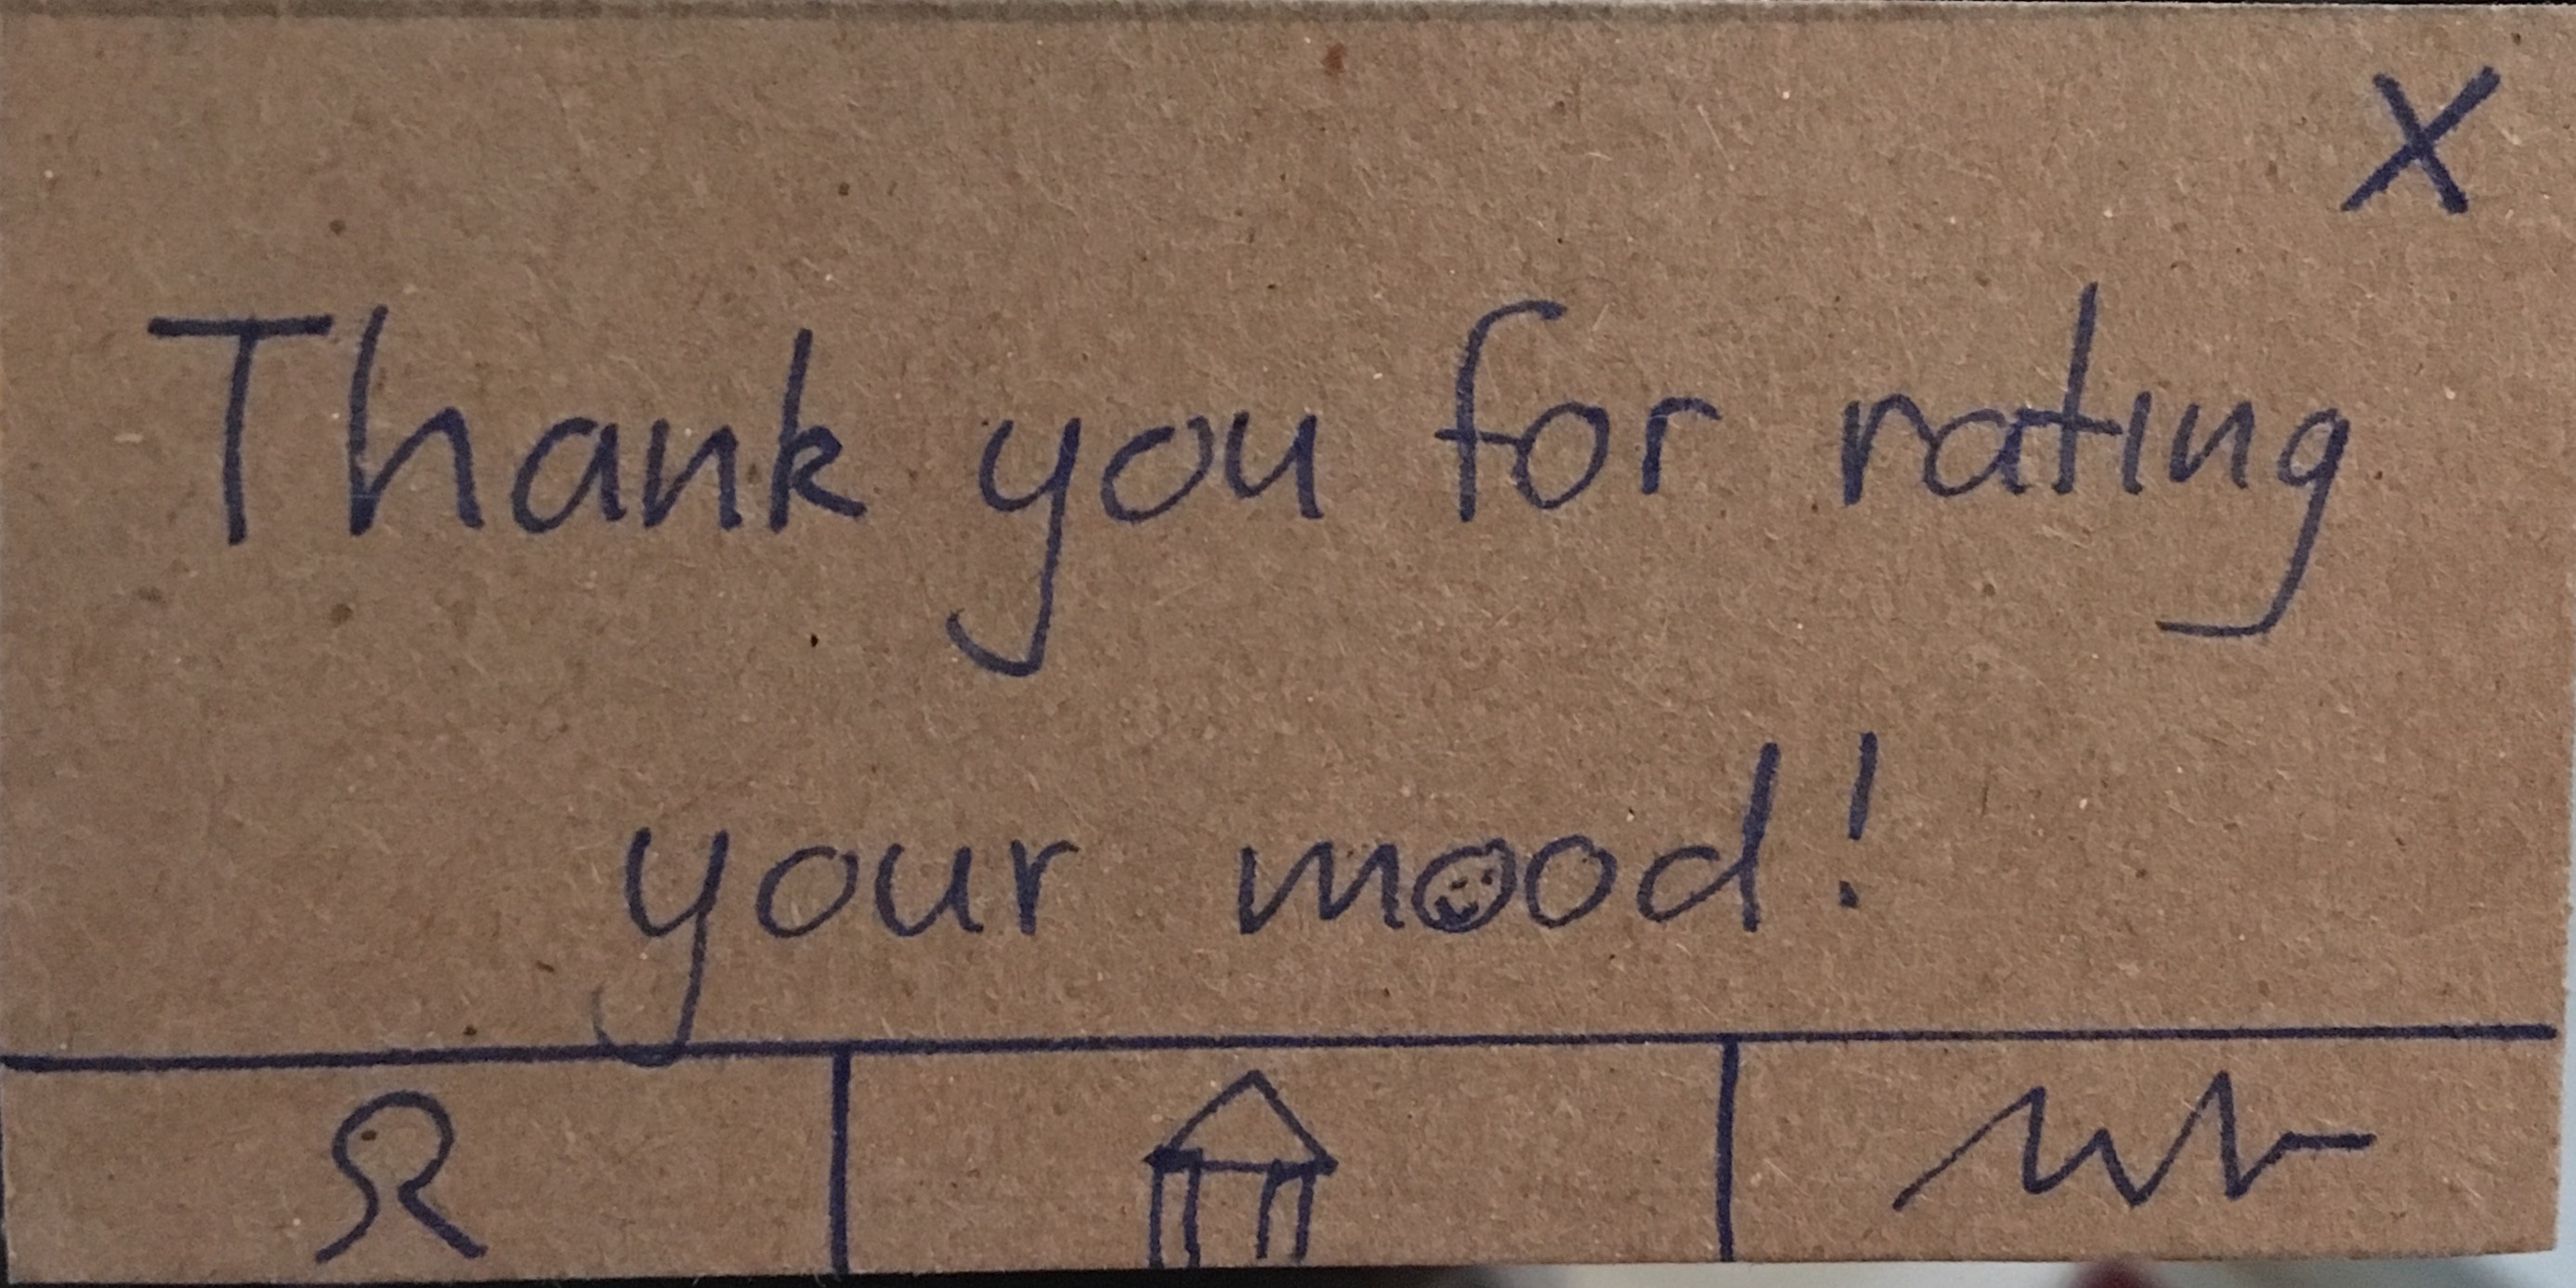 X
Thank you for rating
your mood!